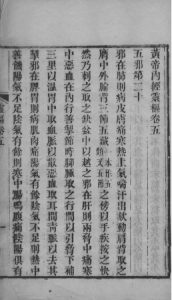 黃帝內經素編卷五
五邪第二十
邪在肺則病皮膚痛寒熱上氣喘汗出欬動肩背取之
膺中外腧背三節五藏之傍以手疾按之快
然乃刺之取之缺盆中以越之邪在肝則兩脅中痛寒
中惡血在內行善掣節時腳腫取之行間以引脅下補
三里以溫胃中取血脈以散惡血取耳間青脈以去其
掣邪在脾胃則病肌肉痛陽氣有餘陰氣不足則熱中
善饑陽氣不足陰氣有餘則寒中腸鳴腹痛陰陽俱有